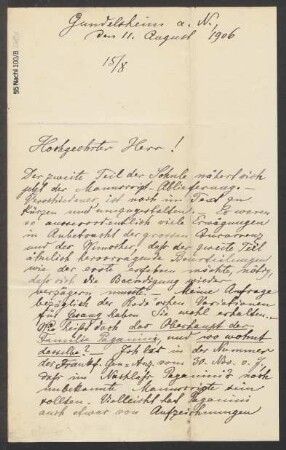 Gundelsheim a. N.,
den 11. August 1906
15/8
55 Nachl 100/B
Hochgeehrter Herr!
Der zweite Teil der Schule nähert sich
jetzt der Manuscript-Ablieferungs-
ist noch im Text zu
kürzen und umzugestalten. Es waren
so ausserordentlich viele Erwägungen
in Anbetracht der grossen
und der Künstler, daß der zweite Teil
ähnlich hervorragende Beurteilungen
wie der erste erfahren möchte, nötig,
daß sich die Beendigung wieder
verzögern musste. Meine Anfrage
bezüglich der Rode'schen Variationen
für haben Sie wohl erhalten.
Wie heißt doch das Oberhaupt der
Familie Paganini und wo wohnt
dasselbe? Ich las in der Nummer
der Frankf. Gen. Anz. vom 30. Nov. v. J.,
daß im Nachlaß Paganini's noch
unbekannte Manuscripte sein
sollten. Vielleicht hat Paganini
auch etwas von Aufzeichnungen